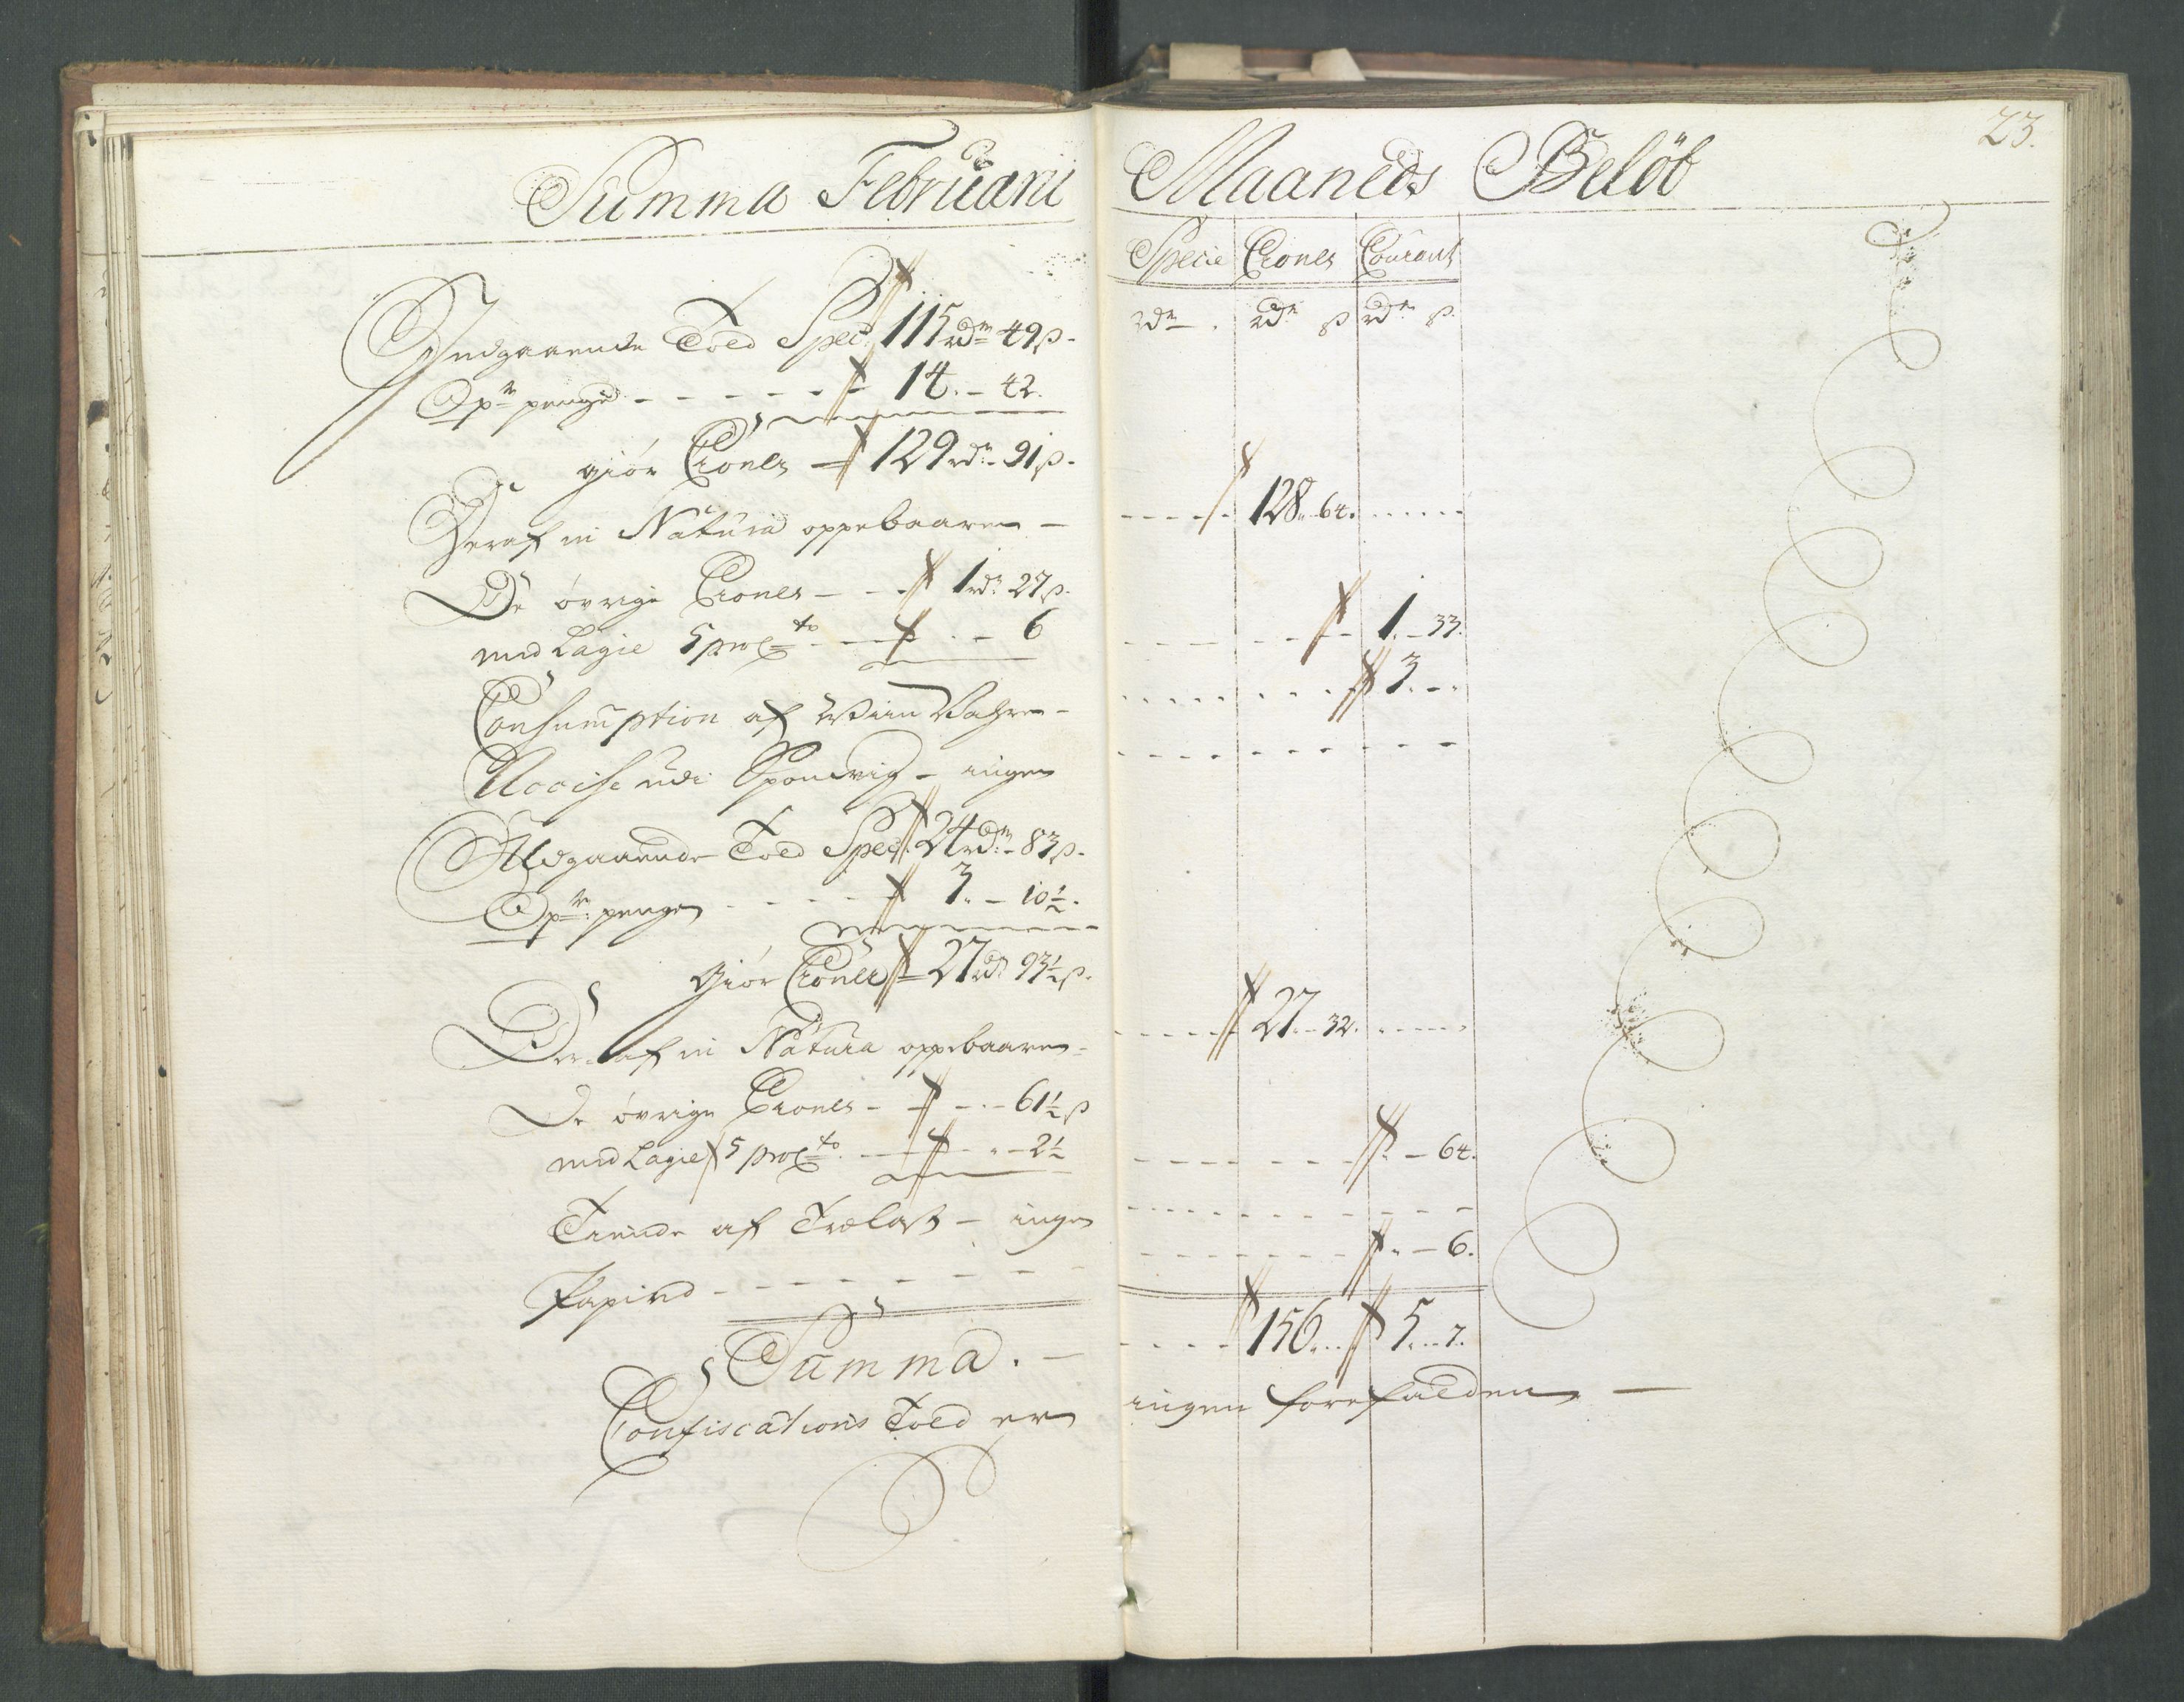 23.
Summa Februarii Maaneds Beløb
Specie Croner Courant
rdr. rdr ß rdr ß.
Indgaaende Told Spec. 115 rdr 49 ß.
Opr penge - - - - - 14. - 42.
giör Croner - 129 rdr. 91 ß.
Deraf in Natura oppebaaren - - - - - 128. 64. - - - - -
De övrige Croner - - 1 rdr. 27 ß.
med Lagie 5 proCto - - - - 6 - - - - - - 1. - 33.
Consumption af Viin Vahre - - - - - - - - 3. - -
Accise udi - ingen - - - - - - - - -
Udgaaende Told Spec. 24 rdr. 83 ß.
Opr. penge - - - - - 3. - 10½.
Giör Croner - 27 rdr 93½ ß.
Deraf in Natura oppebaaren - - - - - 27. - 32. - - - - -
De övrige Croner - - - - - 61½ ß
med Lagie 5 proCto. - - - - 2½ - - - - - - - - 64.
Tiende af Trælast - ingen - - - - - - - - - -
Papired - - - - - - - - - - - - - - - - - 6.
Summa. - - - - - 156. - - 5. - 7.
Confiscations Told er ingen forefalden -